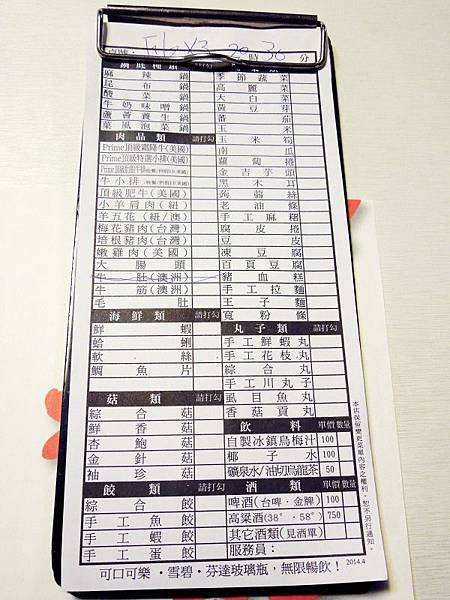 桌號： 時 30 分
鍋底種類 請打勾
麻辣鍋
昆布鍋
酸菜鍋
牛奶味噌鍋
蘆薈養生鍋
菓風泡菜鍋
肉品類 請打勾
Prime頂級霜降牛(美國)
Prime頂級特選小排(美國)
牛小排
頂級肥牛(美國)
小羊肩肉(紐)
羊五花(紐/澳)
梅花豬肉(台灣)
培根豬肉(台灣)
嫩雞肉(美國)
大腸頭
牛肚(澳洲)
牛筋(澳洲)
毛肚
海鮮類 請打勾
鮮蝦
蛤蜊
軟絲
鯛魚片
菇類 請打勾
綜合菇
鮮香菇
杏鮑菇
金針菇
袖珍菇
餃類 請打勾
綜合餃
手工魚餃
手工蝦餃
手工蛋餃
季節蔬菜
高麗菜
大白菜
黃豆芽
番茄
玉米
玉米筍
南瓜
蘿蔔捲
金吉芋頭
黑木耳
蒟蒻絲
老油條
手工麻糬
腐皮捲
豆皮
凍豆腐
百頁豆腐
豬血糕
手工拉麵
王子麵
寬粉條
丸子類 請打勾
手工鮮蝦丸
手工花枝丸
綜合丸
手工川丸子
虱目魚丸
香菇貢丸
飲料 單價 數量
自製冰鎮烏梅汁 100
椰子水 100
礦泉水/油切烏龍茶 50
酒類 單價 數量
啤酒(台啤‧金牌) 100
高粱酒(38°‧58°) 750
其它酒類(見酒單)
服務員：
本店保留變更菜單內容之權利，恕不另行通知。
可口可樂‧雪碧‧芬達玻璃瓶，無限暢飲！ 2014.4